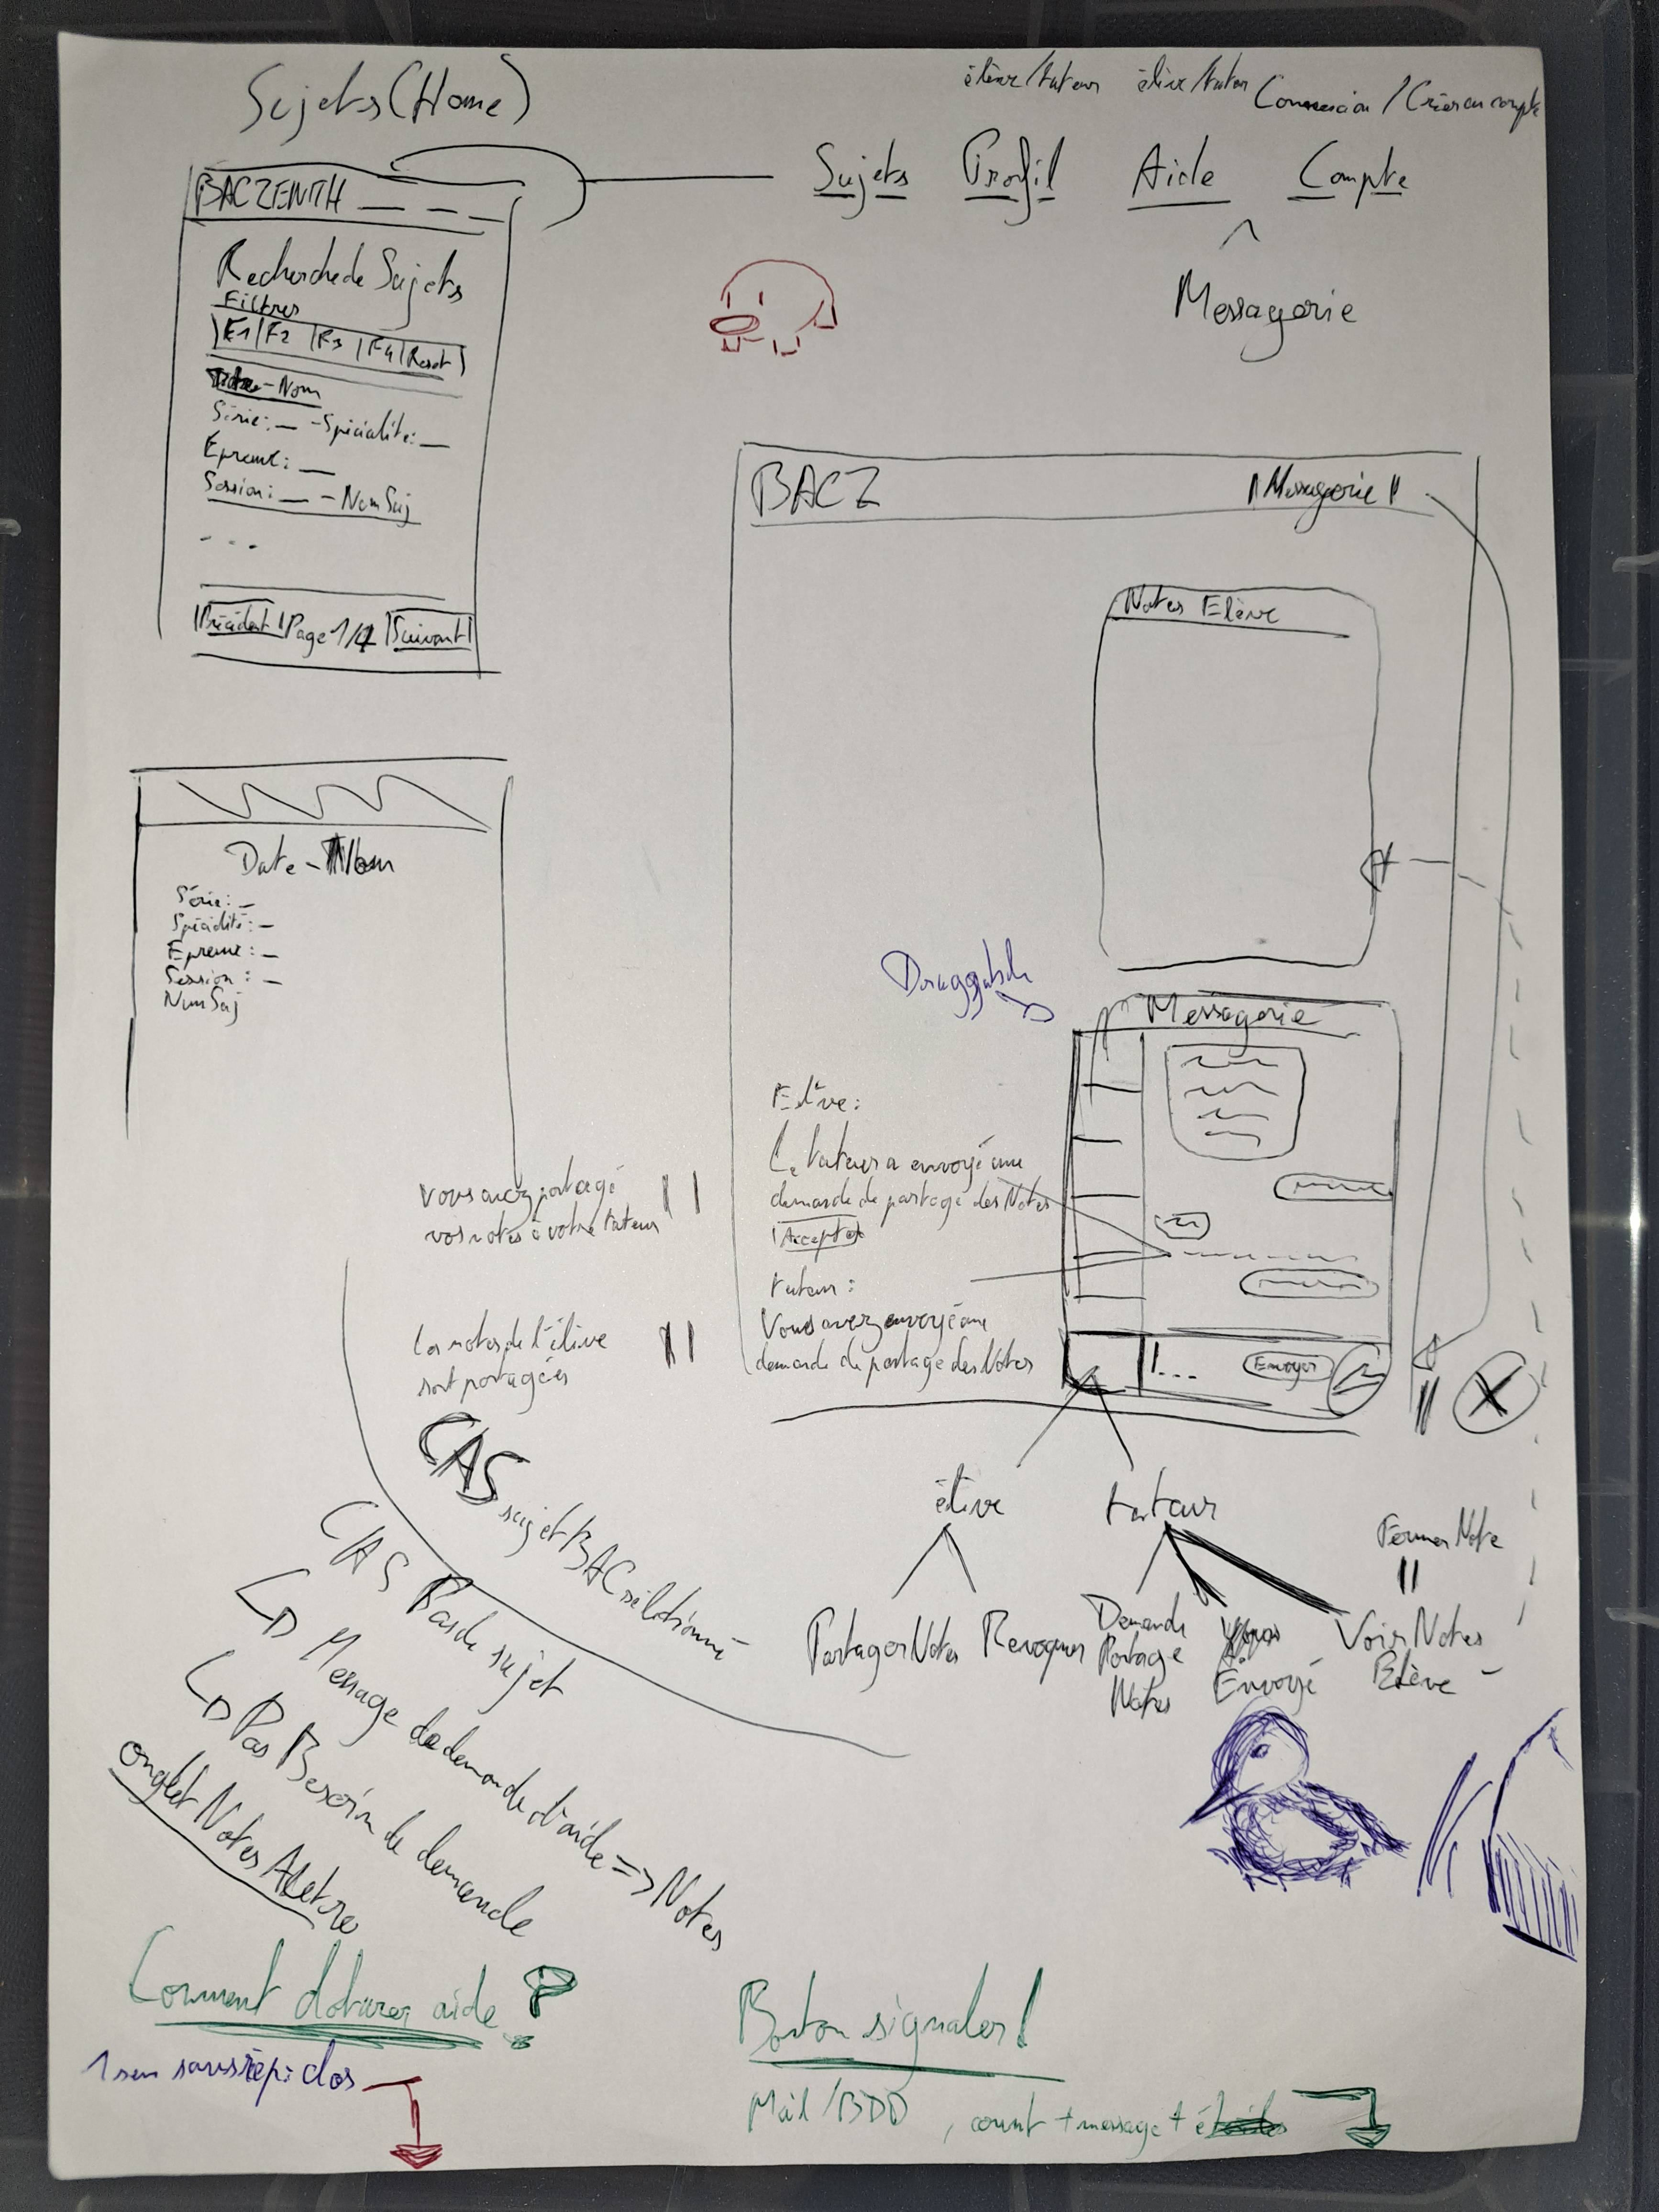 Sujets (Home)
élève/tuteur
élève/tuteur
Connexion / Créer un compte
Sujets Profil Aide Compte
Messagerie
BACZENITH
Recherche de Sujets
Filtres
F1 | F2 | F3 | F4 | Reset
- Nom
Série: _ - Spécialité: _
Épreuve: _
Session: _ - NumSuj
...
Précédent Page 1/ Suivant
Date - Nom
Série: _
Spécialité: _
Epreuve: _
Session: _
NumSuj
BACZ
Messagerie
Notes Elève
Draggable
Messagerie
Envoyer
Elève:
Le tuteur a envoyé une
demande de partage des Notes
Accepter
tuteur:
Vous avez envoyé une
demande de partage des Notes
Vous avez partagé
vos notes à votre tuteur
Les notes de l'élève
sont partagées
élève
tuteur
Partager Notes
Revoquer
Demande
Partage
Notes
Envoyé
Voir Notes
Elève
Fermer Note
CAS sujet BAC sélectionné
CAS Pas de sujet
Message de demande d'aide => Notes
Pas Besoin de demande
onglet Notes
Comment aide ?
1 sem sans rép: clos
Bouton signaler !
Mail / BDD , count + message +